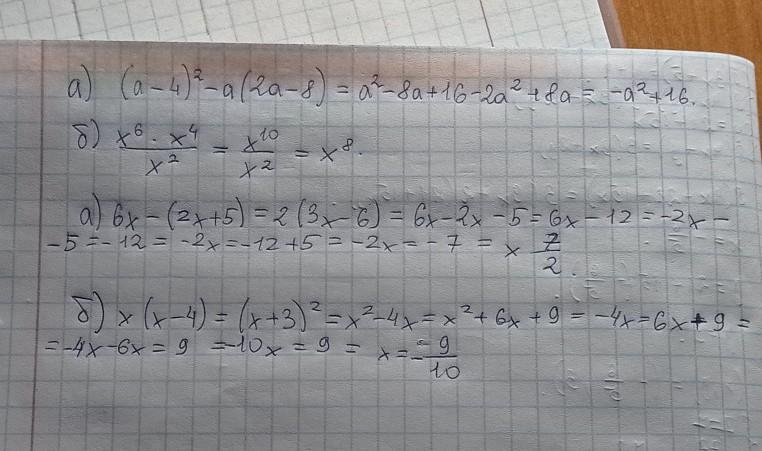 а) (a-4)² - a(2a-8) = a² - 8a + 16 - 2a² + 8a = -a² + 16.
б) x⁶ · x⁴ / x² = x¹⁰ / x² = x⁸.
а) 6x - (2x+5) = 2(3x-6) = 6x - 2x - 5 = 6x - 12 = -2x -
-5 = -12 = -2x = -12 + 5 = -2x = -7 = x 7/2.
б) x(x-4) = (x+3)² = x² - 4x = x² + 6x + 9 = -4x = 6x + 9 =
= -4x - 6x = 9 = -10x = 9 = x = -9/10